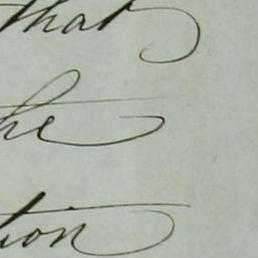 that
he
tion